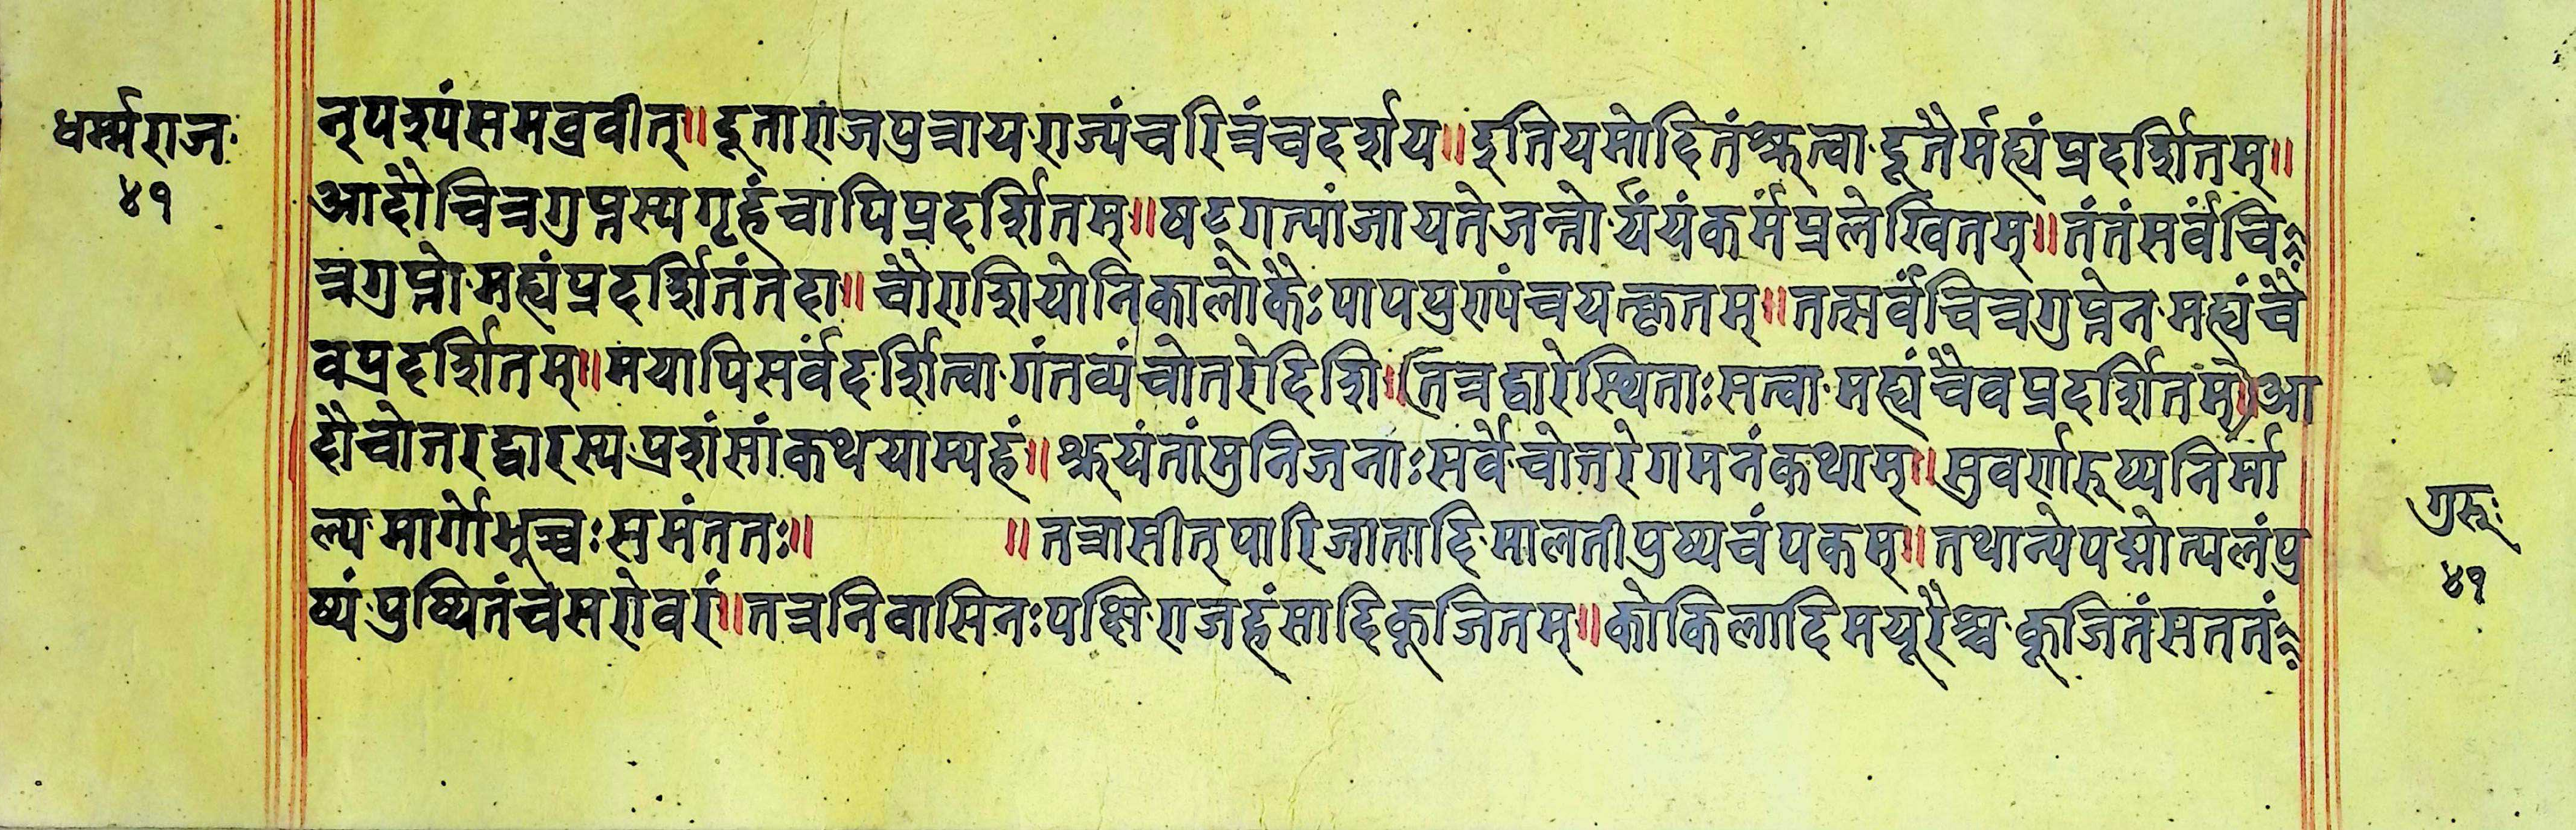 धर्म्मराज
४१
नृपरूपंसमव्रवीत्॥दूताराजपुत्राय राज्यंचरित्रंचदर्शय॥इतियमोदितंश्रुत्वा दूतैर्मह्यंप्रदर्शितम्॥
आदौचित्रगुप्तस्यगृहंचापिप्रदर्शितम्॥षट्गत्यांजायतेजन्तोर्ययंकर्मप्रलेखितम्॥तंतंसर्वंचि
त्रगुप्तो मह्यंप्रदर्शितंतदा॥चौराशियोनिकालोकैःपापपुण्यंचयत्कृतम्॥तत्सर्वंचित्रगुप्तेन मह्यंचै
वप्रदर्शितम्॥मयापिसर्वंदर्शित्वा गंतव्यंचोतरेदिशि॥(तत्रद्वारेस्थिताःसत्वा मह्यंचैवप्रदर्शितम्)॥आ
दौचोत्तरद्वारस्य प्रशंसांकथयाम्यहं॥श्रुयंतांमुनिजनाःसर्वे चोत्तरेगमनंकथाम्॥सुवर्णरूप्यनिर्मा
ल्य मार्गोभूच्चःसमंततः॥ ॥तत्रासीत्पारिजातादि मालतीपुष्पचंपकम्॥तथान्येपद्मोत्पलंपु
ष्पं पुष्पितंचसरोवरं॥तत्रनिवासिनःपक्षि राजहंसादिकूजितम्॥कोकिलादिमयूरैश्च कूजितंसततं
गुरूः
४१